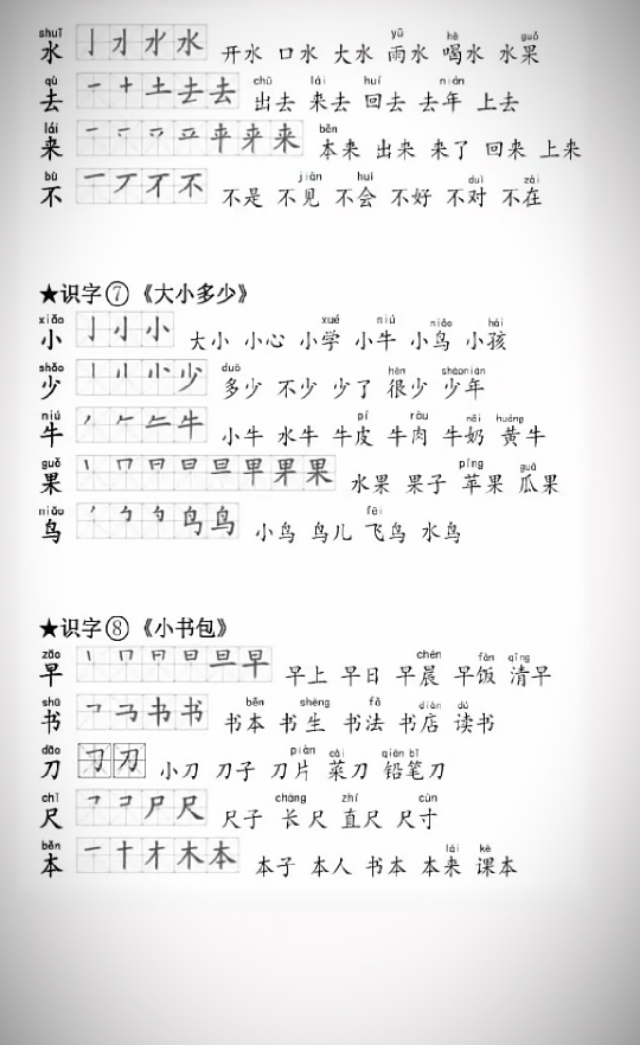 shuǐ yǔ hē guǒ
水 亅 刁 水 水 开水 口水 大水 雨水 喝水 水果
qù chū lái huí nián
去 一 十 土 去 去 出去 来去 回去 去年 上去
lái běn
来 一 平 来 来 本来 出来 来了 回来 上来
bù jiàn huì duì zài
不 一 丆 不 不 不是 不见 不会 不好 不对 不在
★识字⑦《大小多少》
xiǎo xué niú niǎo hái
小 亅 小 小 大小 小心 小学 小牛 小鸟 小孩
shǎo duō hěn shàonián
少 小 少 多少 不少 少了 很少 少年
niú pí ròu nǎi huáng
牛 丿 牛 小牛 水牛 牛皮 牛肉 牛奶 黄牛
guǒ píng guā
果 丨 冂 日 日 旦 甲 果 果 水果 果子 苹果 瓜果
niǎo fēi
鸟 鸟 鸟 小鸟 鸟儿 飞鸟 水鸟
★识字⑧《小书包》
zǎo chén fàn qīng
早 丨 冂 日 日 旦 早 早上 早日 早晨 早饭 清早
shū běn shēng fǎ diàn dú
书 书 书 书本 书生 书法 书店 读书
dāo piàn cài qiān bǐ
刀 刀 刀 小刀 刀子 刀片 菜刀 铅笔刀
chǐ cháng zhí cùn
尺 尸 尺 尺子 长尺 直尺 尺寸
běn lái kè
本 一 十 才 木 本 本子 本人 书本 本来 课本